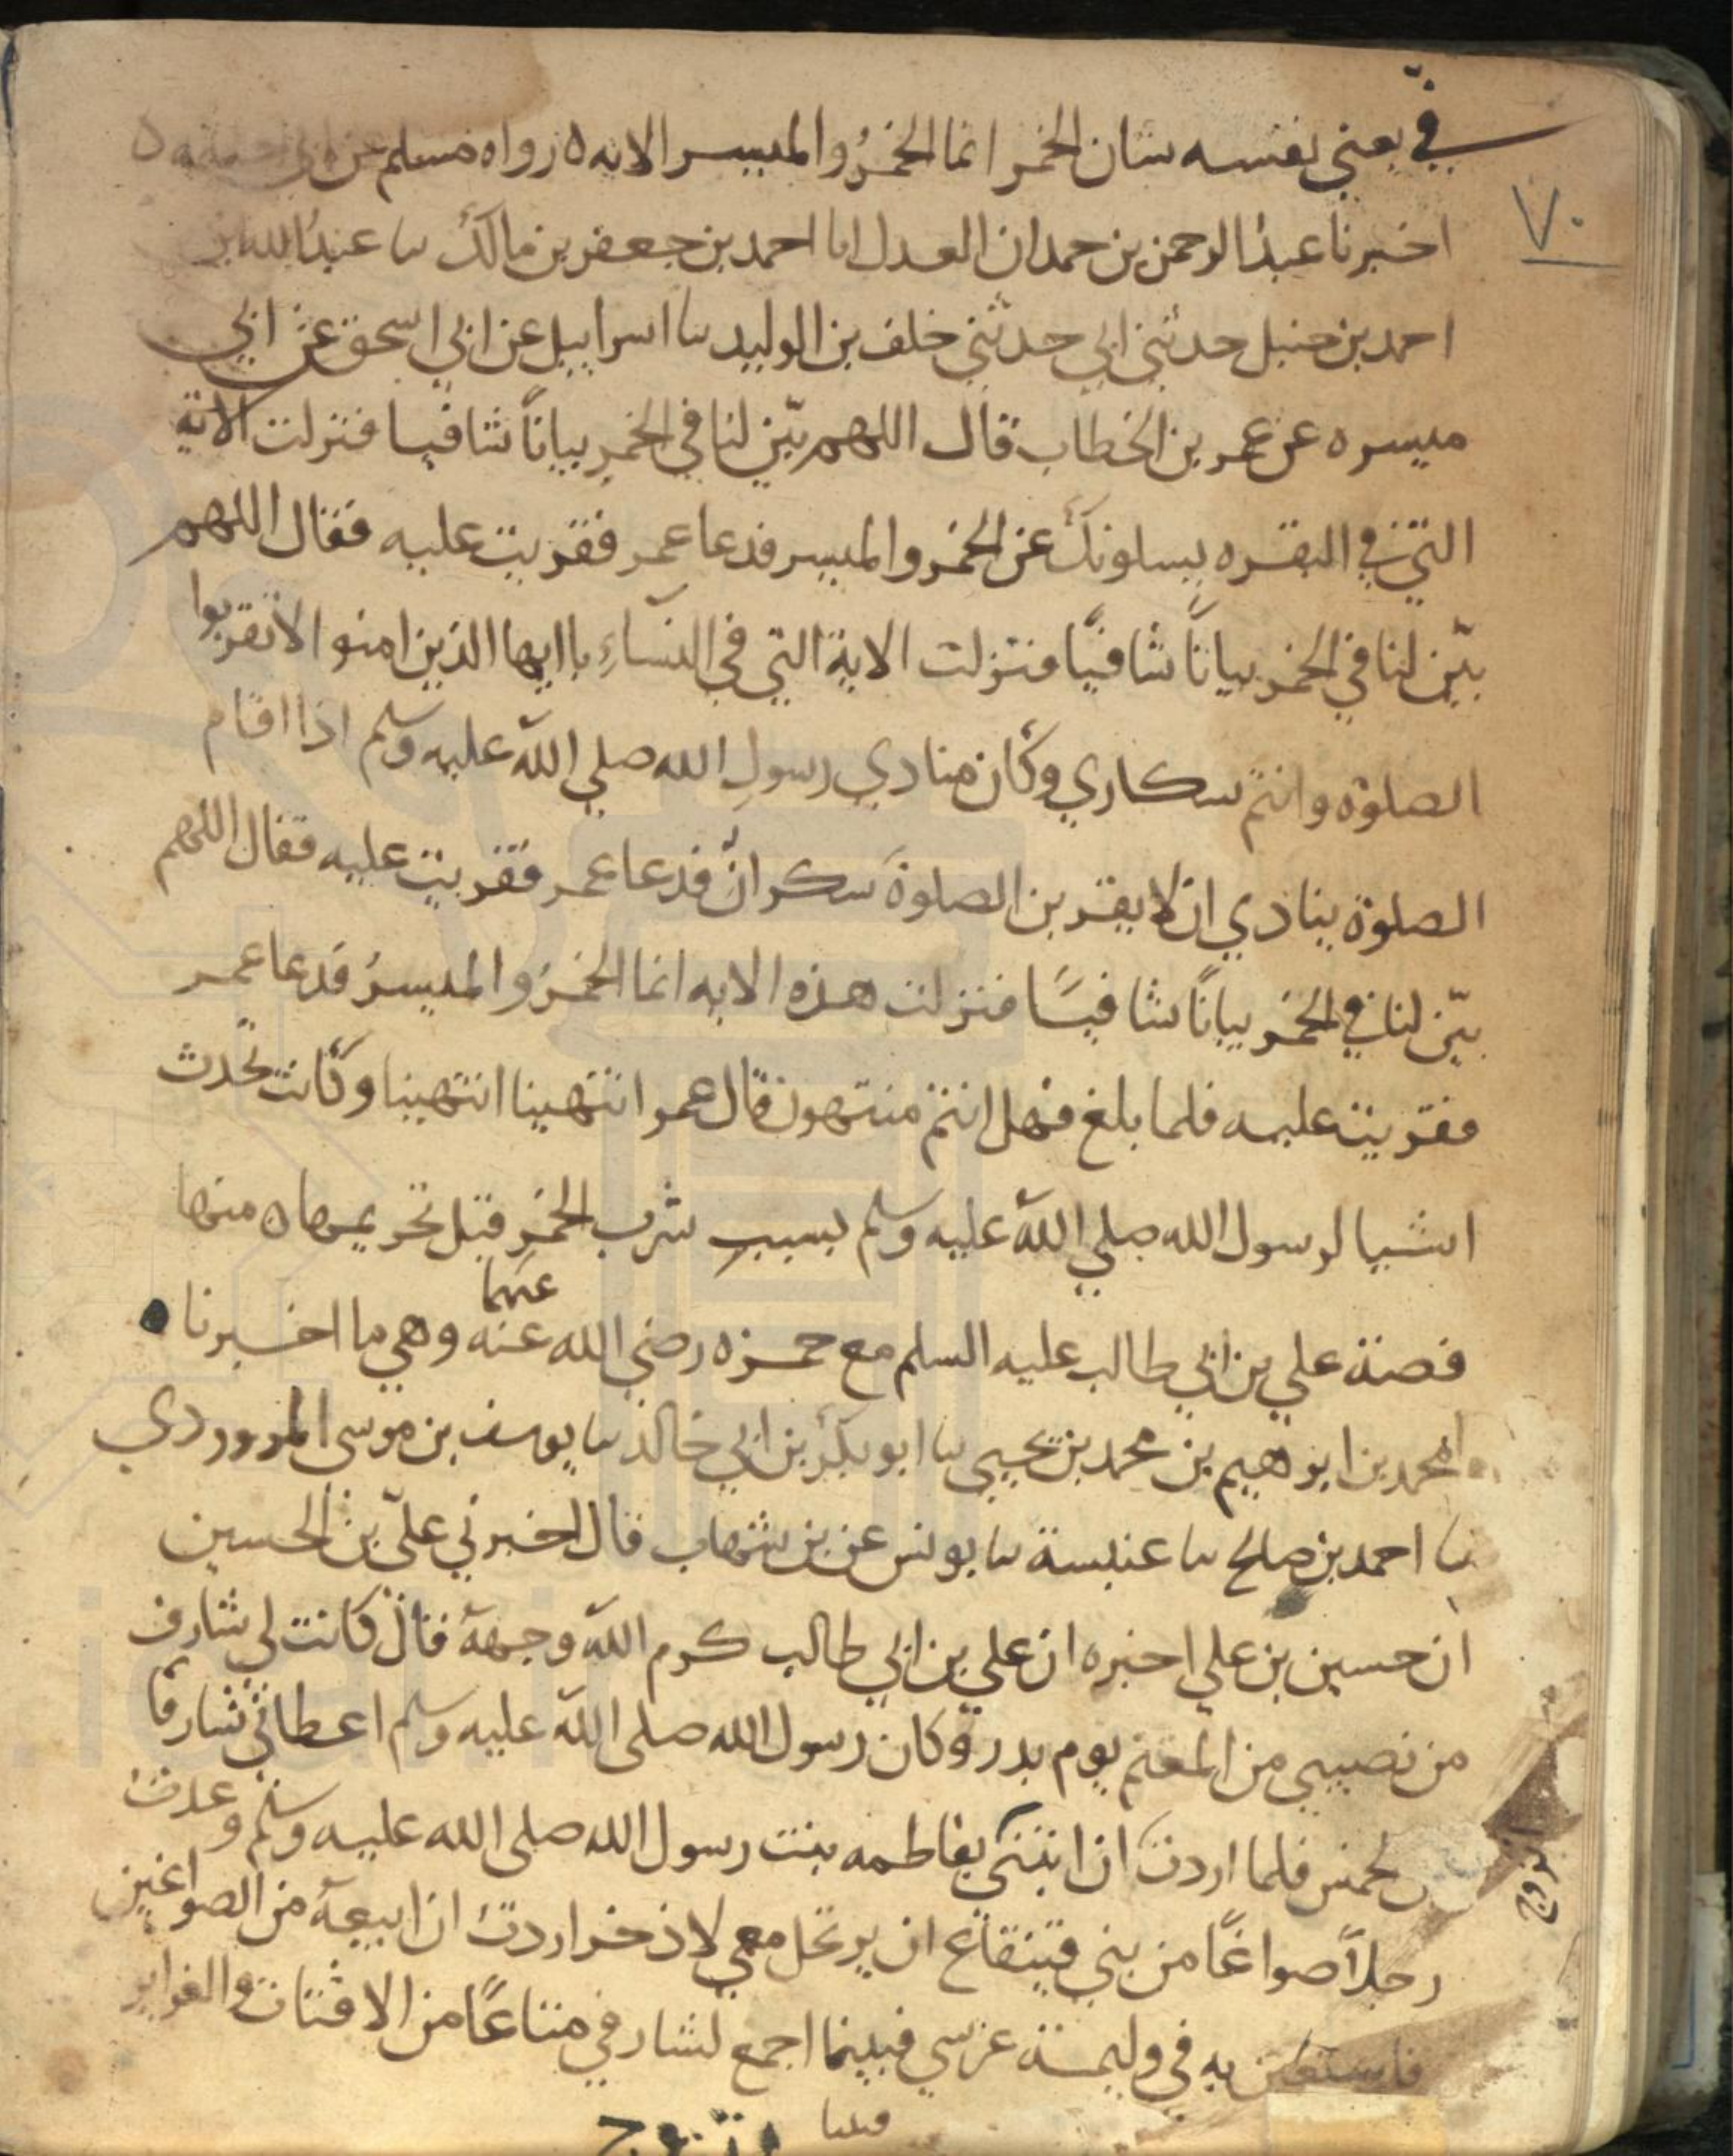 في يعني نفسه شان الخمر انما الخمرُ والميسر الايه ه رواه مسلم عن ابي
٧٠
اخبرنا عبدُ الرحمن بن حمدان العدل انا احمد بن جعفر بن مالك نا عبدُ الله بن
احمد بن حنبل حدثني ابي حدثني خلف بن الوليد نا اسراييل عن ابي اسحق عن ابي
ميسره عن عمر بن الخطاب قال اللهم بيّن لنا في الخمرِ بياناً شافيا فنزلت الاية
التي في البقره يسلونك عن الخمر والميسر فدعا عمر فقريت عليه فقال اللهم
بيّن لنا في الخمر بياناً شافيًا فنزلت الاية التي في النساءِ ياايها الذين امنو الاتقربوا
الصلوة وانتم سكاري وكان منادي رسولِ الله صلي اللهَ عليه وسلم اذا اقام
الصلوة ينادي ان لا يقربن الصلوةَ سكران فدعا عمر فقريت عليه فقال اللهم
بيّن لنا في الخمر بياناً شافيًا فنزلت هذه الايه انما الخمرُ والميسرُ فدعا عمر
فقريت عليه فلما بلغ فهل انتم منتهون قال عمر انتهينا انتهينا وكانت تحدث
اشيا لرسول الله صلي اللهَ عليه وسلم بسببِ شرب الخمرِ قبل تحريمها ه منها
عنهما
قصة علي بن ابي طالب عليه السلم مع حمزه رضي الله عنه وهي ما اخبرنا
محمد بن ابرهيم بن محمد بن يحيي نا ابو بكر بن ابي خالد نا يوسف بن موسى المروردي
نا احمد بن صالح نا عنبسة نا يونس عن بن شهاب قال اخبرني عليّ بن الحسين
ان حسين بن علي اخبره ان علي بن ابي طالب كرم اللهَ وجهه قال كانت لي شارف
من نصيبي من المغنم يوم بدر وكان رسول الله صلى اللهَ عليه وسلم اعطاني شارفًا
الخمس فلما اردت ان ابتني بفاطمه بنت رسول الله صلى الله عليه وسلم وعدت
اتزوج
رجلاً صواغًا من بني قينقاع ان يرتحل معي لاذخر اردت ان ابيعه من الصواغين
فاستعين به في وليمة عرسي فبينما اجمع لشارفي متاعًا من الاقتات والغراير
فبينا